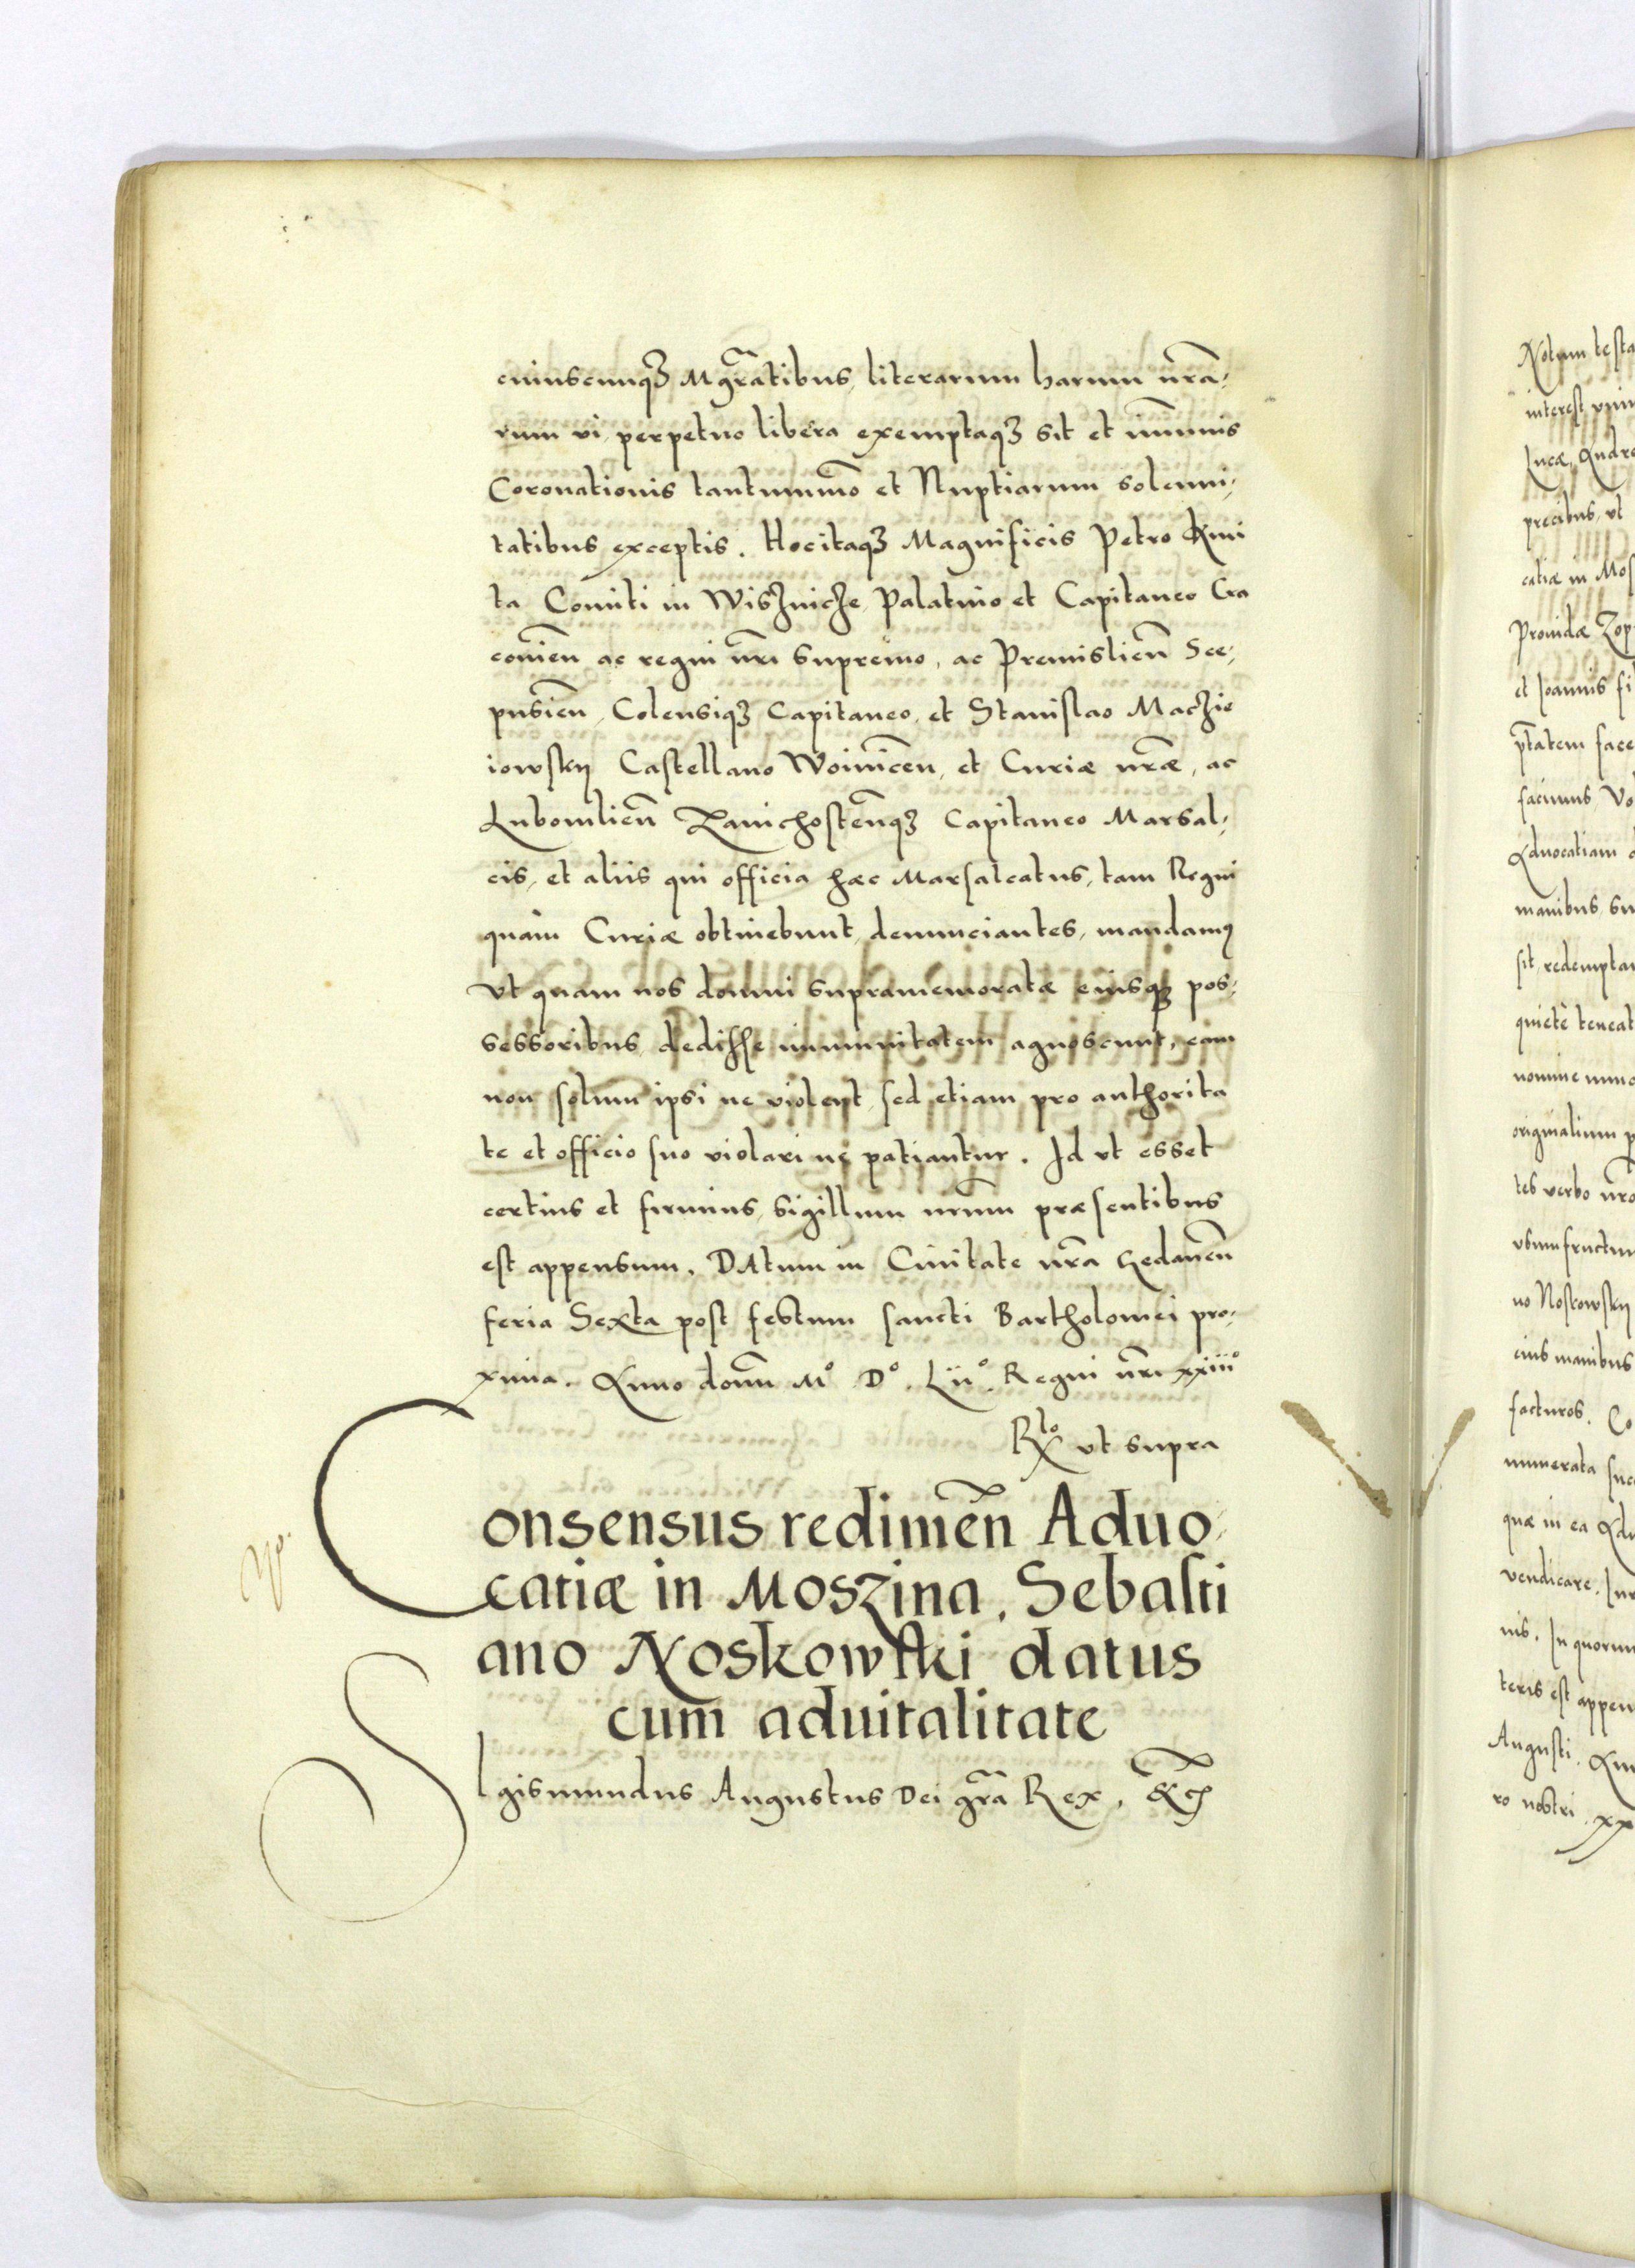 cuiuscunqꝫ Mgr̃atibus, literarum harum nr̃a-
rum vi, perpetuo libera exemptaqꝫ sit et im̃unis
Coronationis tantum̃o et Nuptiarum solenni-
tatibus exceptis. Hocitaqꝫ Magnificis Petro Kmi
ta Comiti in Wisznicze, Palatino et Capitaneo Cra
couieñ ac regni nr̃i supremo, ac Premislieñ Sce-
pusieñ, Colensiqꝫ Capitaneo, et Stanislao Maczie
iowsky Castellano Woiniceñ, et Curiæ nr̃æ, ac
Lubomlieñ Zawichosteñqꝫ Capitaneo Marsal-
cis, et aliis qui officia hæc Marsalcatus, tam Regni
quàm Curiæ obtinebunt, denunciantes, mandamꝰ
Vt quam nos domui supramemoratæ eiusqꝫ pos-
sessoribus, dedisse immunitatem agnoscunt, eam
non solum ipsi ne violent, sed etiam pro authorita
te et officio suo violari ne patiantur. Id vt esset
certius et firmius, sigillum nr̃um præsentibus
est appensum. DAtum in Ciuitate nr̃a Gedaneñ
feria Sexta post festum sancti Bartholomei pro-
xima. Anno domĩ Mº Dº. Lijº. Regni nr̃i xxiijº
Rlo vt supra
Consensus redimeñ Aduo-
catiæ in Moszina, Sebasti
ano Noskowski datus
cum aduitalitate
SIgismundus Augustus Dei gr̃a Rex, &c̃
Notum testa
interest vni
Lucæ, Andre
precibus, vt
catiæ in Mos
Prouidæ Zop
et Joannis fi
p̃tatem face
facimus, Vo
Aduocatiam
manibus, su
sit, redempta
quietè teneat
nomine
originalium p
tes verbo nr̃o
vsumfructum
no Noskowsky
eius manibus
facturos. Co
numerata suc
quæ in ea Adu
vendicare. Iur
nis. In quorum
teris est appen
Augusti. Ann
ro nostri. xx